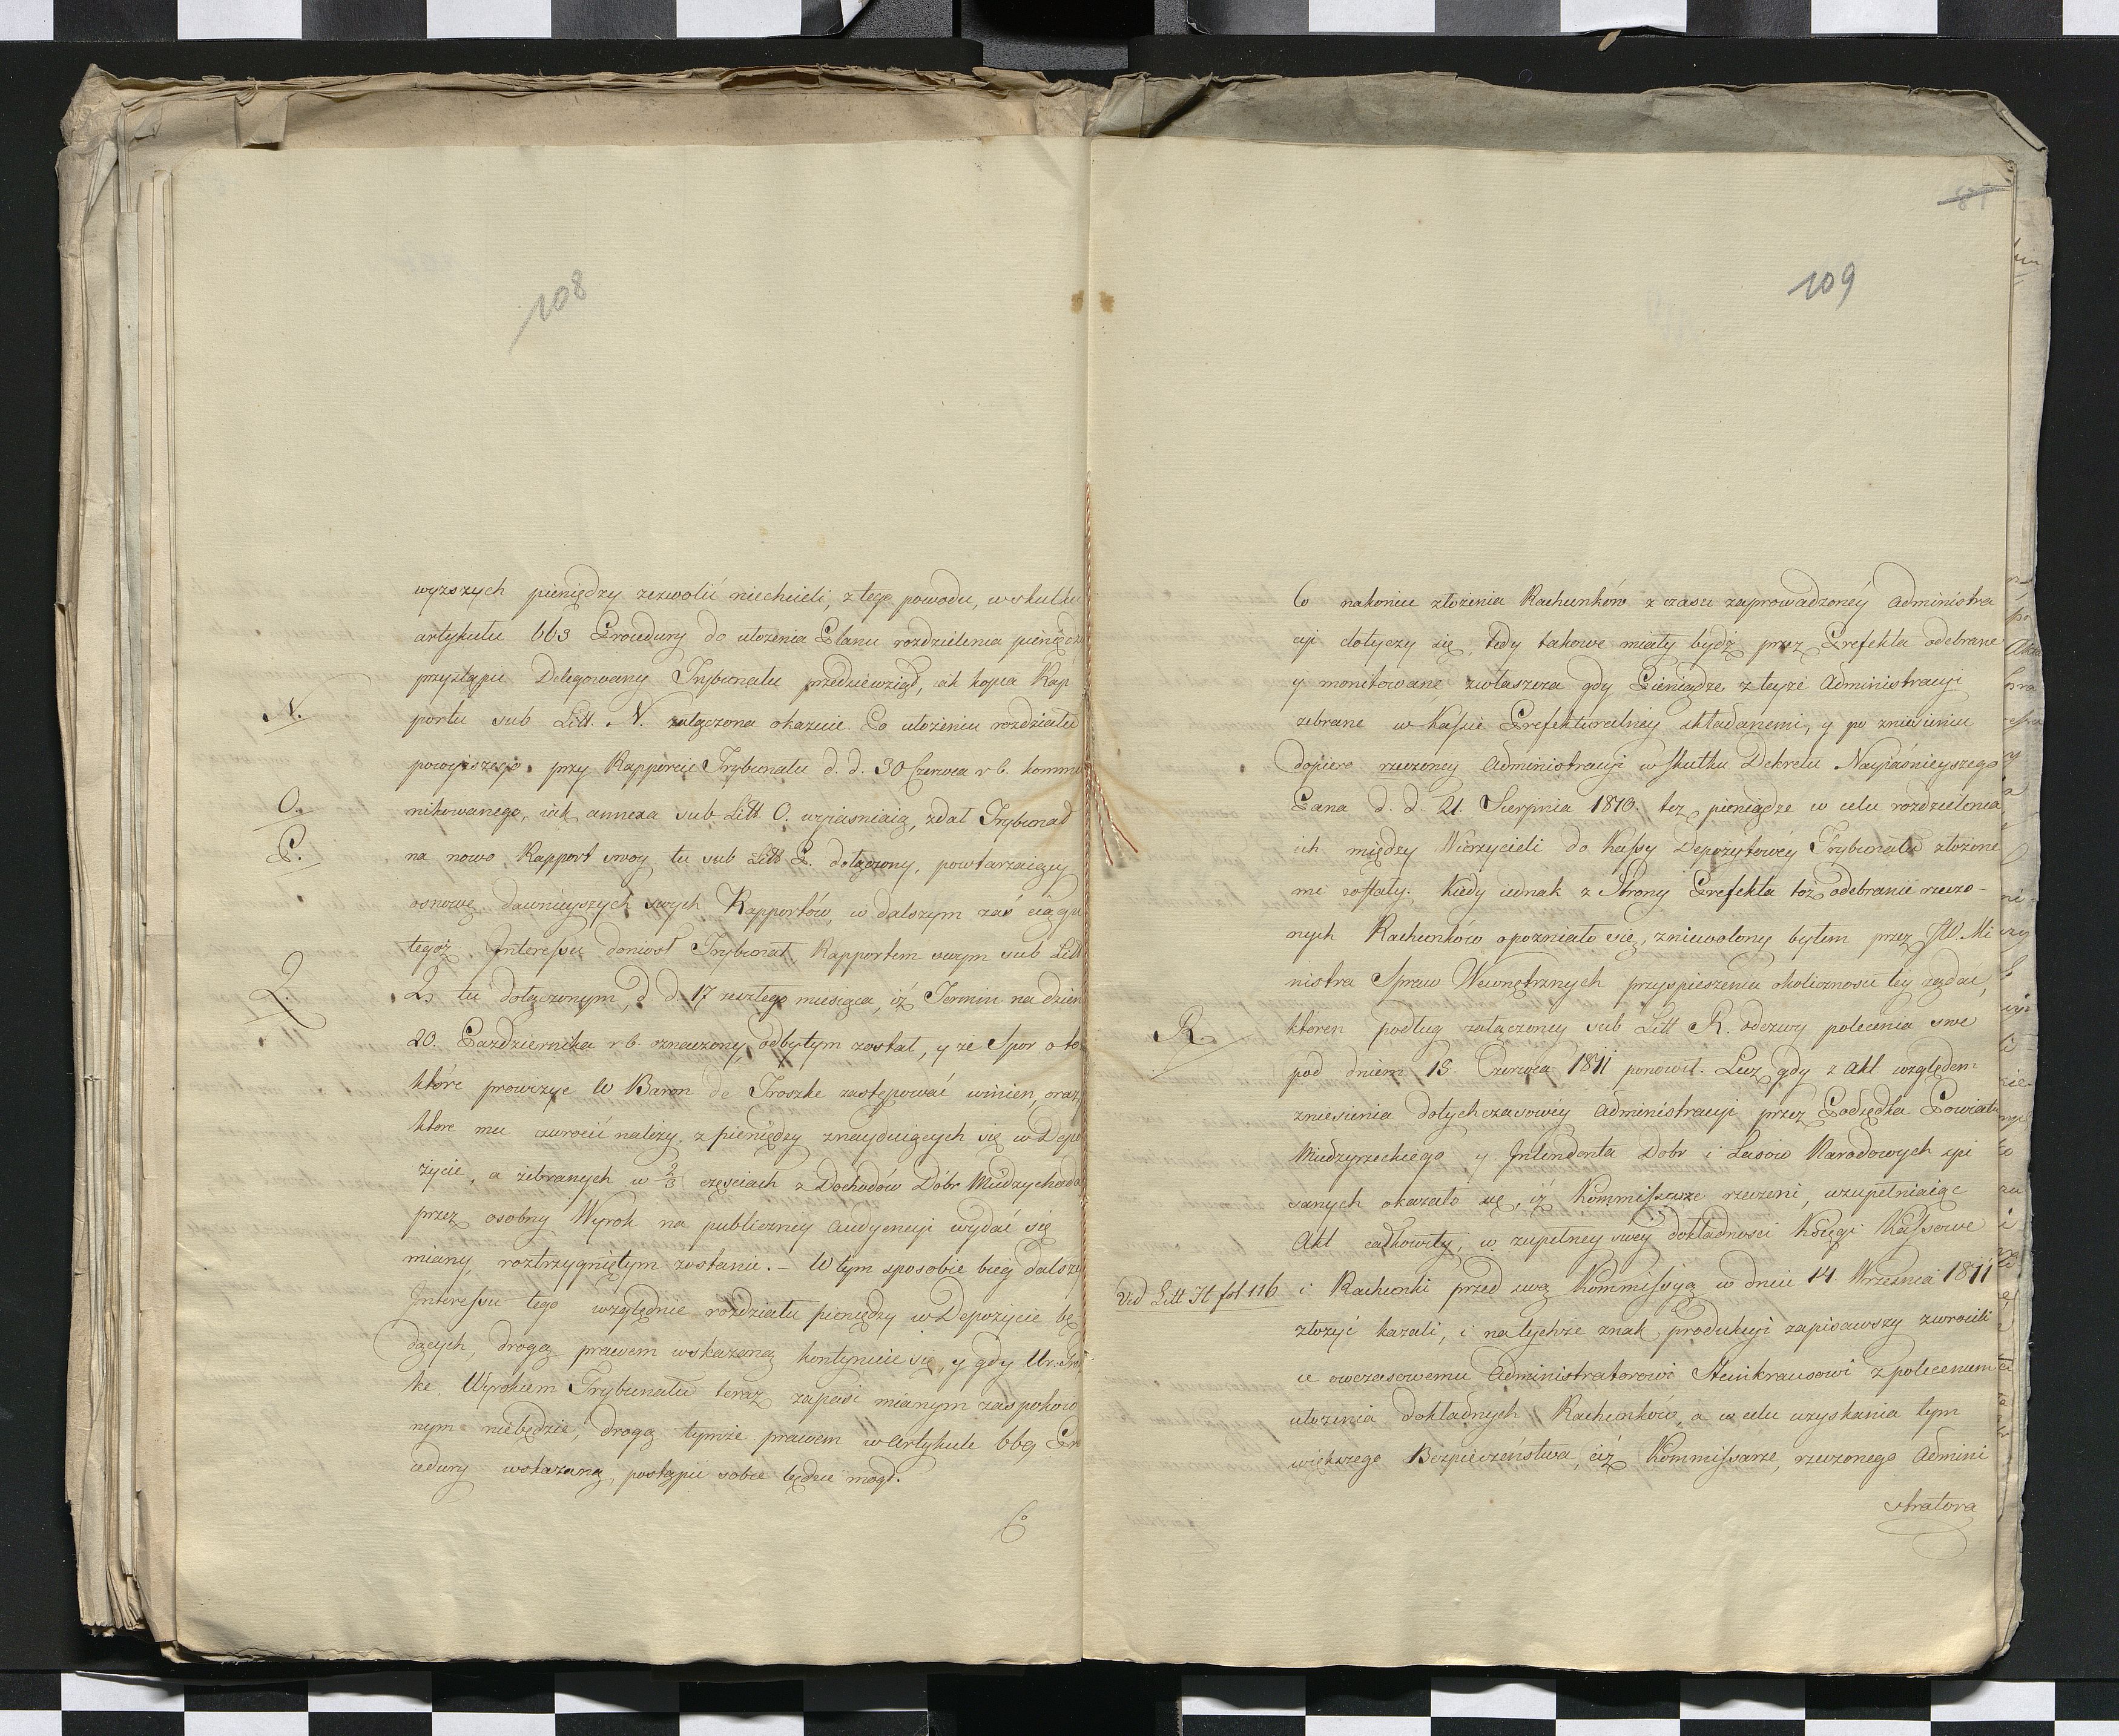 108
wyższych pieniędzy zezwolić niechcieli, z tego powodu, w skutku
artykułu 663 Procedury do ułożenia Planu rozdzielenia pieniędzy
przystąpić Delegowany Trybunału przedsięwziął, iak kopia Rap
N.
portu sub Litt. N. załączona okazuie. Po ułożeniu rozdziału
powyższego, przy Rapporcie Trybunału d. d. 30 Czerwca r b. kommu
O.
nikowanego, iak annexa sub Litt O. wyiaśniaią, zdał Trybunał
P.
na nowo Rapport swoy tu sub Litt P. dołączony, powtarzaiący
osnowę dawnieyszych swych Rapportów, w dalszym zaś ciągu
tegoż Interessu doniosł Trybunał, Rapportem swym sub Litt
Q.
Q tu dołączonym, d d. 17 zeszłego miesiąca, iż Termin na dzień
20. Października r b oznaczony, odbytym został, y ze Spor o to
które prowizye W Baron de Troszke zastępować winien, oraz
które mu zwrocić należy, z pieniędzy znayduiących się w Depo
życie, a zebranych w 2/3 częściach z Dochodów Dóbr Międzychoda
przez osobny Wyrok na publiczney Audyencyi wydać się
miany, roztrzygniętym zostanie. – W tym sposobie bieg dalszy
Interessu tego względnie rozdziału pieniędzy w Depozycie bę
dących, drogą prawem wskazaną kontynuie się, y gdy Ur. Tro
ke, Wyrokiem Trybunału teraz zapaść mianym zaspokoio
nym niebędzie, drogą tymże prawem w Artykule 669 Pr
cedury wskazaną, postąpić sobie będzie mógł.
Co
81
109
Co nakoniec złożenia Rachunków z czasu zaprowadzoney Administra
cyi dotyczy się, tedy takowe miały bydź przez Prefekta odebrane
y monitowane zwłaszcza gdy Pieniądze z teyże Administracyi
zebrane w Kassie Prefekturalney składanemi, y po zniesieniu
dopiero rzeczoney Administracyi w skutku Dekretu Nayiaśnieyszego
Pana d. d. 21. Sierpnia 1810. też pieniądze w celu rozdzielenia
ich między Wierzycieli do Kassy Depozytowey Trybunału złożone
mi zostały; Kiedy iednak z Strony Prefekta toż odebranie rzeczo-
nych Rachunków opozniało się, zniewolony byłem przez JW. Mi
nistra Spraw Wewnętrznych przyspieszenia okoliczności tey żądać,
R.
ktoren podług załączoney sub Litt R. odezwy polecenia swe
pod dniem 18. Czerwca 1811 ponowił. Lecz gdy z Akt względem
zniesienia dotychczasowey Administracyi przez Podsędka Powiatu
Międzyrzeckiego y Intendenta Dobr i Lasów Narodowych spi
sanych okazało się, iż Kommissarze rzeczeni, uzupełniaiąc
Akt całkowity, w zupełney swey dokładności Księgi Kassowe
Vid Litt H fol 116
i Rachunki przed swą Kommissyą w dniu 14. Września 1811
złożyć kazali, i na tychże znak produkcyi zapisawszy zwrocili
ie owczasowemu Administratorowi Steinkrausowi z poleceniem
ułożenia dokładnych Rachunków, a w celu uzyskania tym
większego Bezpieczeństwa, ciż Kommissarze, rzeczonego Admini
stratora